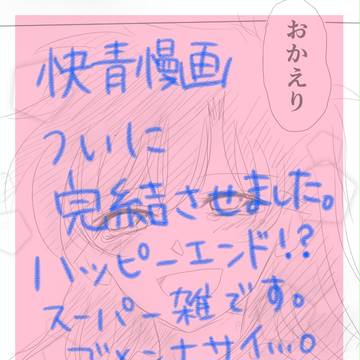 おかえり
快青慢画
ついに
完結させました。
ハッピーエンド!?
スーパー雑です。
ゴメンナサイ…。